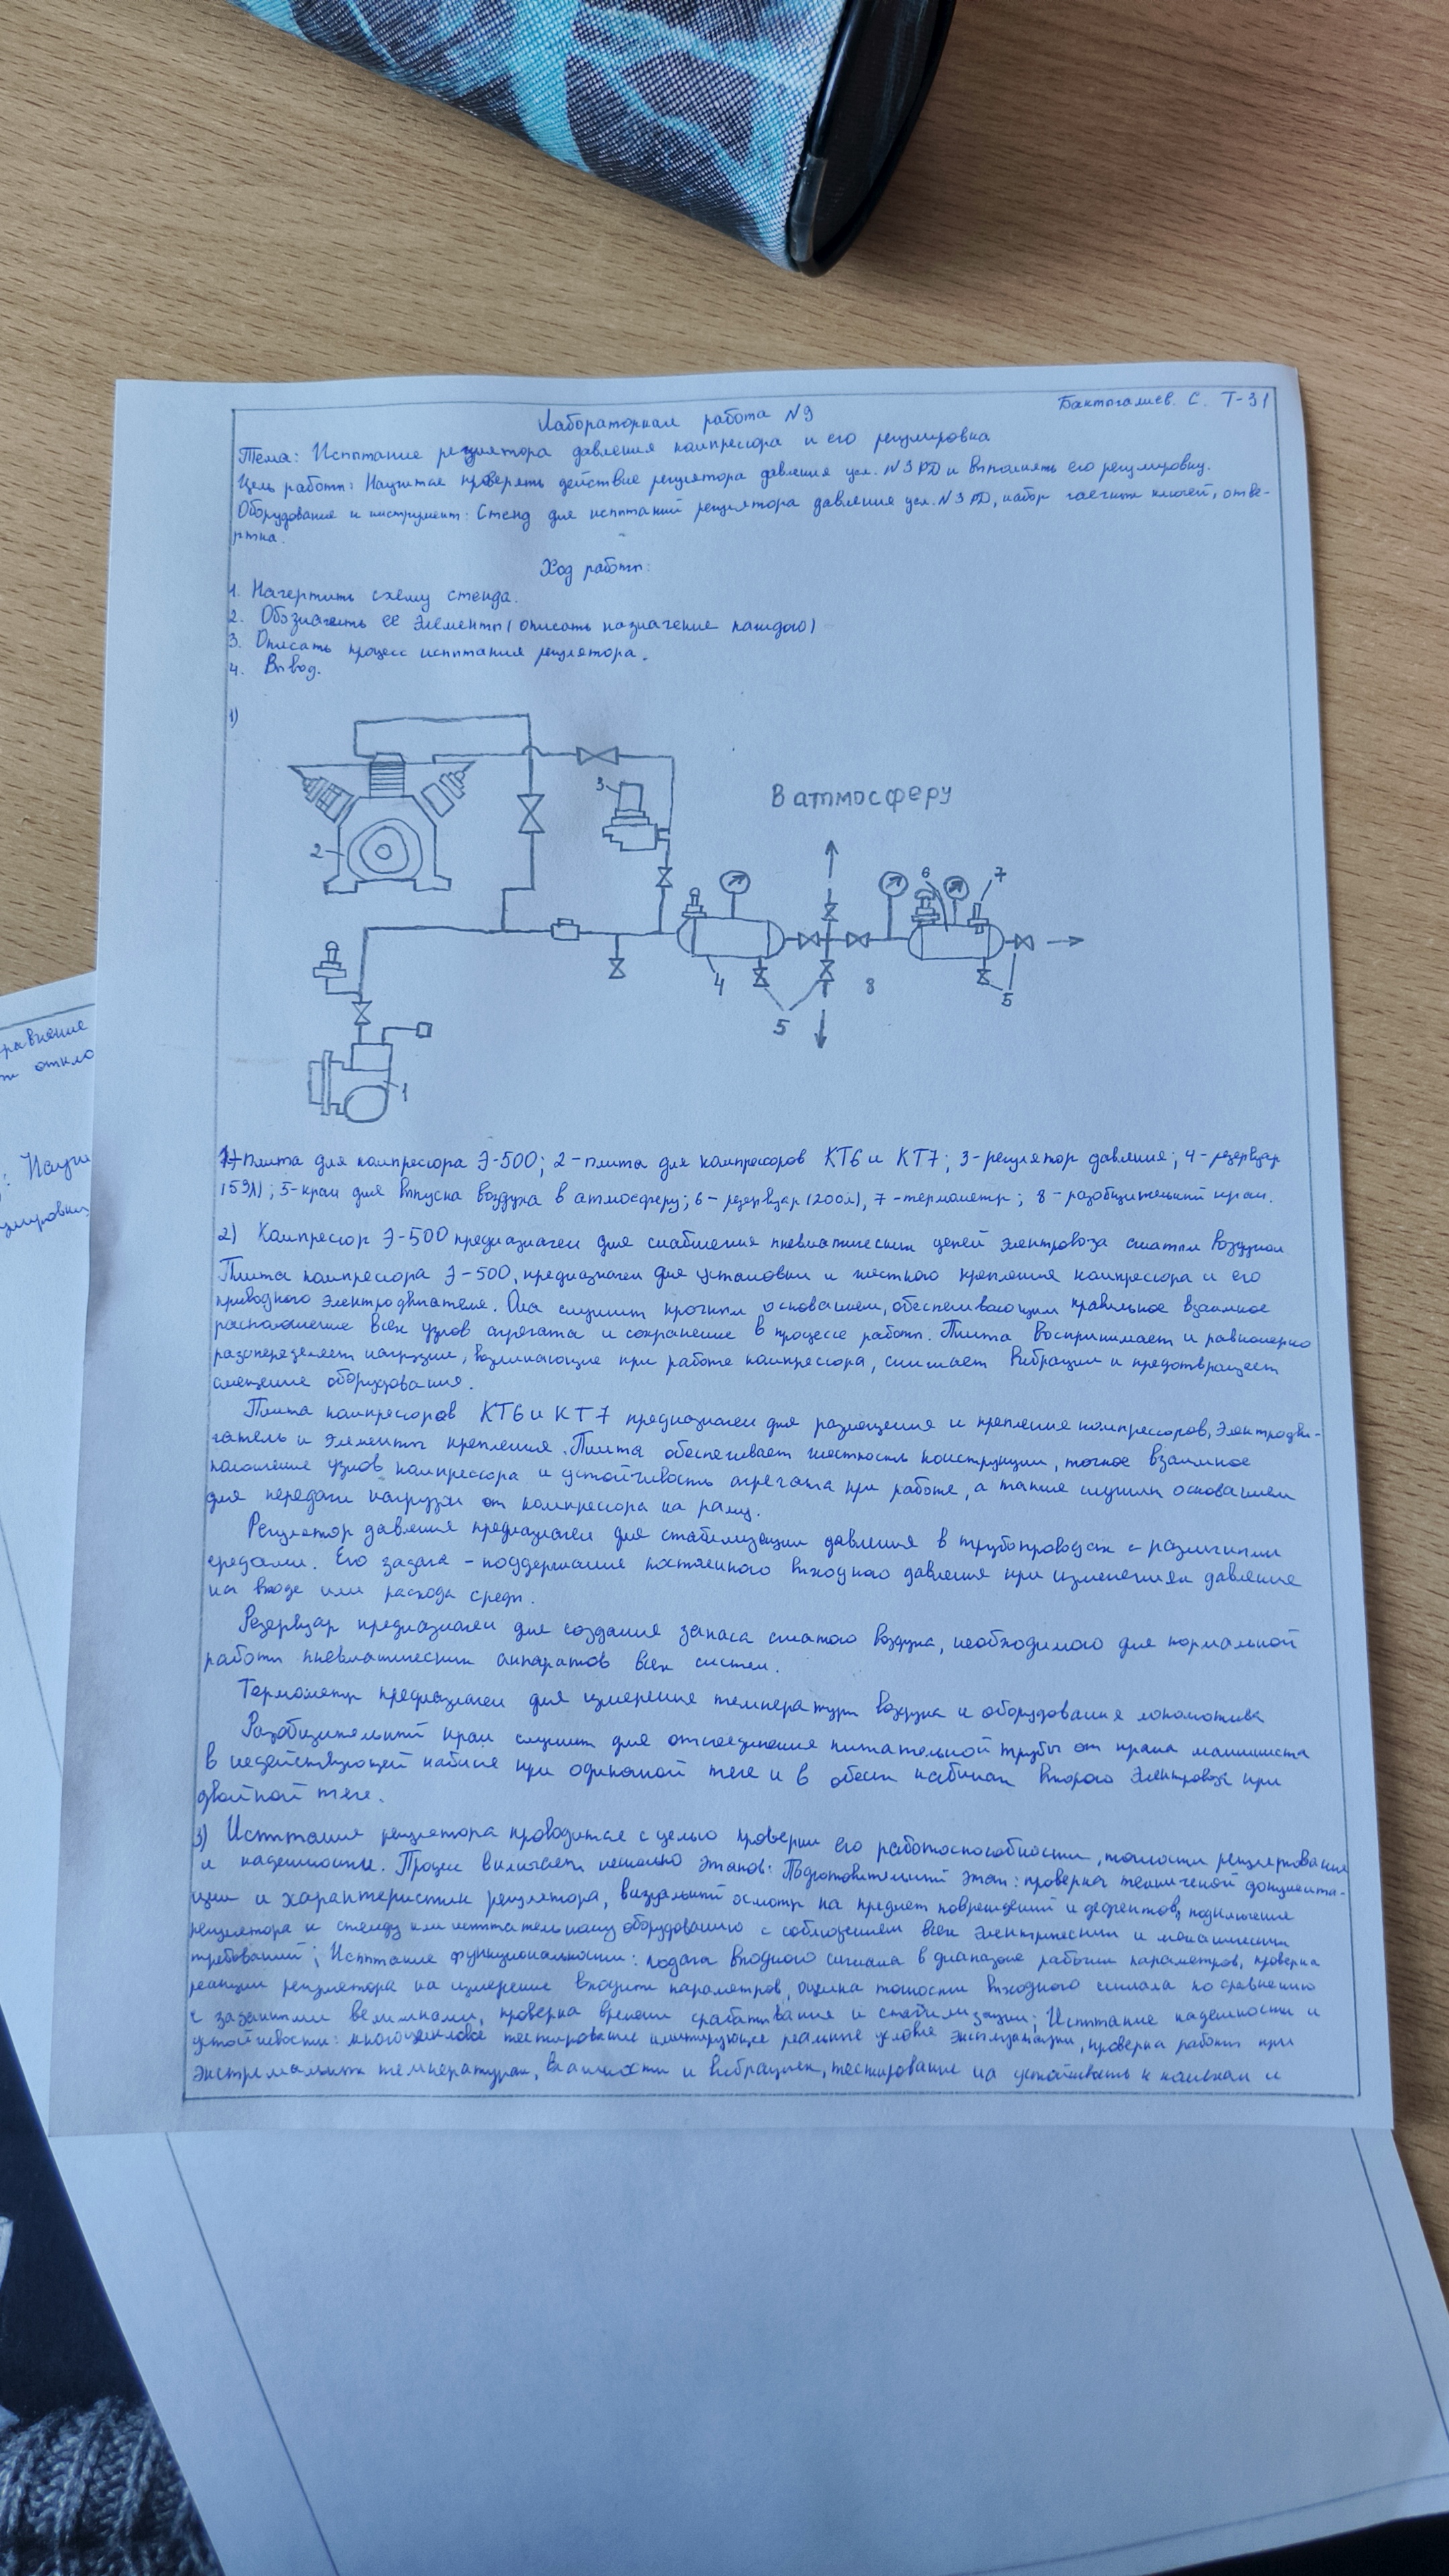 Бактыгалиев. С. Т-31
Лабораторная работа N9
Тема: Испытание регулятора давления компрессора и его регулировка
Цель работы: Научится проверять действие регулятора давления усл. N3 РД и выполнять его регулировку.
Оборудование и инструмент: Стенд для испытаний регулятора давления усл. N3 РД, набор гаечных ключей, отве-
ртка.
Ход работы:
1. Начертить схему стенда.
2. Обозначить её элементы (описать назначение каждого)
3. Описать процесс испытания регулятора.
4. Вывод.
1)
3
В атмосферу
2
6
7
4
8
5
5
1
1-плита для компрессора Э-500; 2-плита для компрессоров КТ6 и КТ7; 3-регулятор давления; 4-резервуар
(59л); 5-кран для выпуска воздуха в атмосферу; 6-резервуар (200л), 7-термометр; 8-разобщительный кран.
2) Компрессор Э-500 предназначен для снабжения пневматических цепей электровоза сжатым воздухом
Плита компрессора Э-500, предназначен для установки и жесткого крепления компрессора и его
приводного электродвигателя. Она служит прочным основанием, обеспечивающим правильное взаимное
расположение всех узлов агрегата и сохранение в процессе работы. Плита воспринимает и равномерно
распределяет нагрузки, возникающие при работе компрессора, снижает вибрации и предотвращает
смещение оборудования.
Плита компрессоров КТ6 и КТ7 предназначен для размещения и крепление компрессоров, электродви-
гатель и элементы крепления. Плита обеспечивает жесткость конструкции, точное взаимное
положение узлов компрессора и устойчивость агрегата при работе, а также служит основанием
для передачи нагрузки от компрессора на раму.
Регулятор давления предназначен для стабилизации давления в трубопроводах с различными
средами. Его задача - поддержание постоянного выходного давления при изменениях давление
на входе или расхода среды.
Резервуар предназначен для создания запаса сжатого воздуха, необходимого для нормальной
работы пневматических аппаратов всех систем.
Термометр предназначен для измерение температуры воздуха и оборудования локомотива
Разобщительный кран служит для отсоединения питательной трубы от крана машиниста
в недействующей кабине при одиночной тяге и в обеих кабинах второго электровоза при
двойной тяге.
3) Испытания регулятора проводится с целью проверки его работоспособности, точности регулирования
и надежности. Процесс включает несколько этапов: Подготовительный этап: проверка технической документа-
ции и характеристик регулятора, визуальный осмотр на предмет повреждений и дефектов, подключение
регулятора к стенду или испытательному оборудованию с соблюдением всех электрических и механических
требований; Испытание функциональности: подача входного сигнала в диапазоне рабочих параметров, проверка
реакции регулятора на измерение входных параметров, оценка точности выходного сигнала по сравнению
с заданными величинами, проверка времени срабатывания и стабилизации; Испытание надежности и
устойчивости: многоцикловое тестирование имитирующее реальные условие эксплуатации, проверка работы при
экстремальных температурах, влажности и вибрациях, тестирование на устойчивость к и
равнение
откло
: Научи